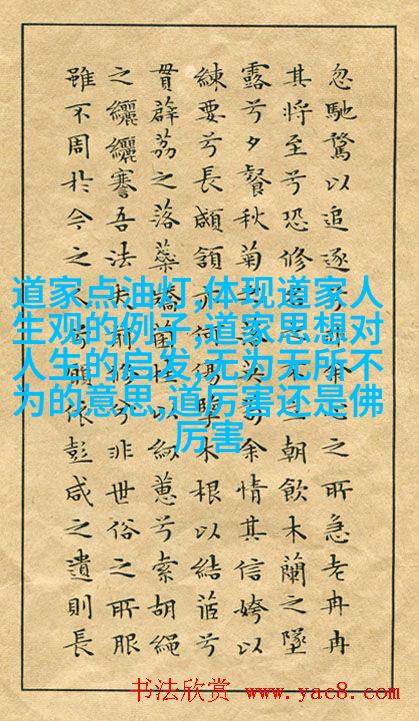 忽馳騖以追逐兮非余心之所急老冉冉
其將至兮恐修名之不立朝飲木蘭之墜
露兮夕餐秋菊之落英余情其信姱以
練要兮長顑頷亦何傷擥木根以結茝兮
貫薜荔之落蘂矯菌桂以紉蕙兮索胡繩
之纚纚謇吾法夫前修兮非世俗之所服
雖不周於今之人兮願依彭咸之遺則長
道家点油灯,体现道家人
生观的例子,道家思想对
人生的启发,无为无所不
为的意思,道厉害还是佛
厉害
书法欣赏 www.yac8.com